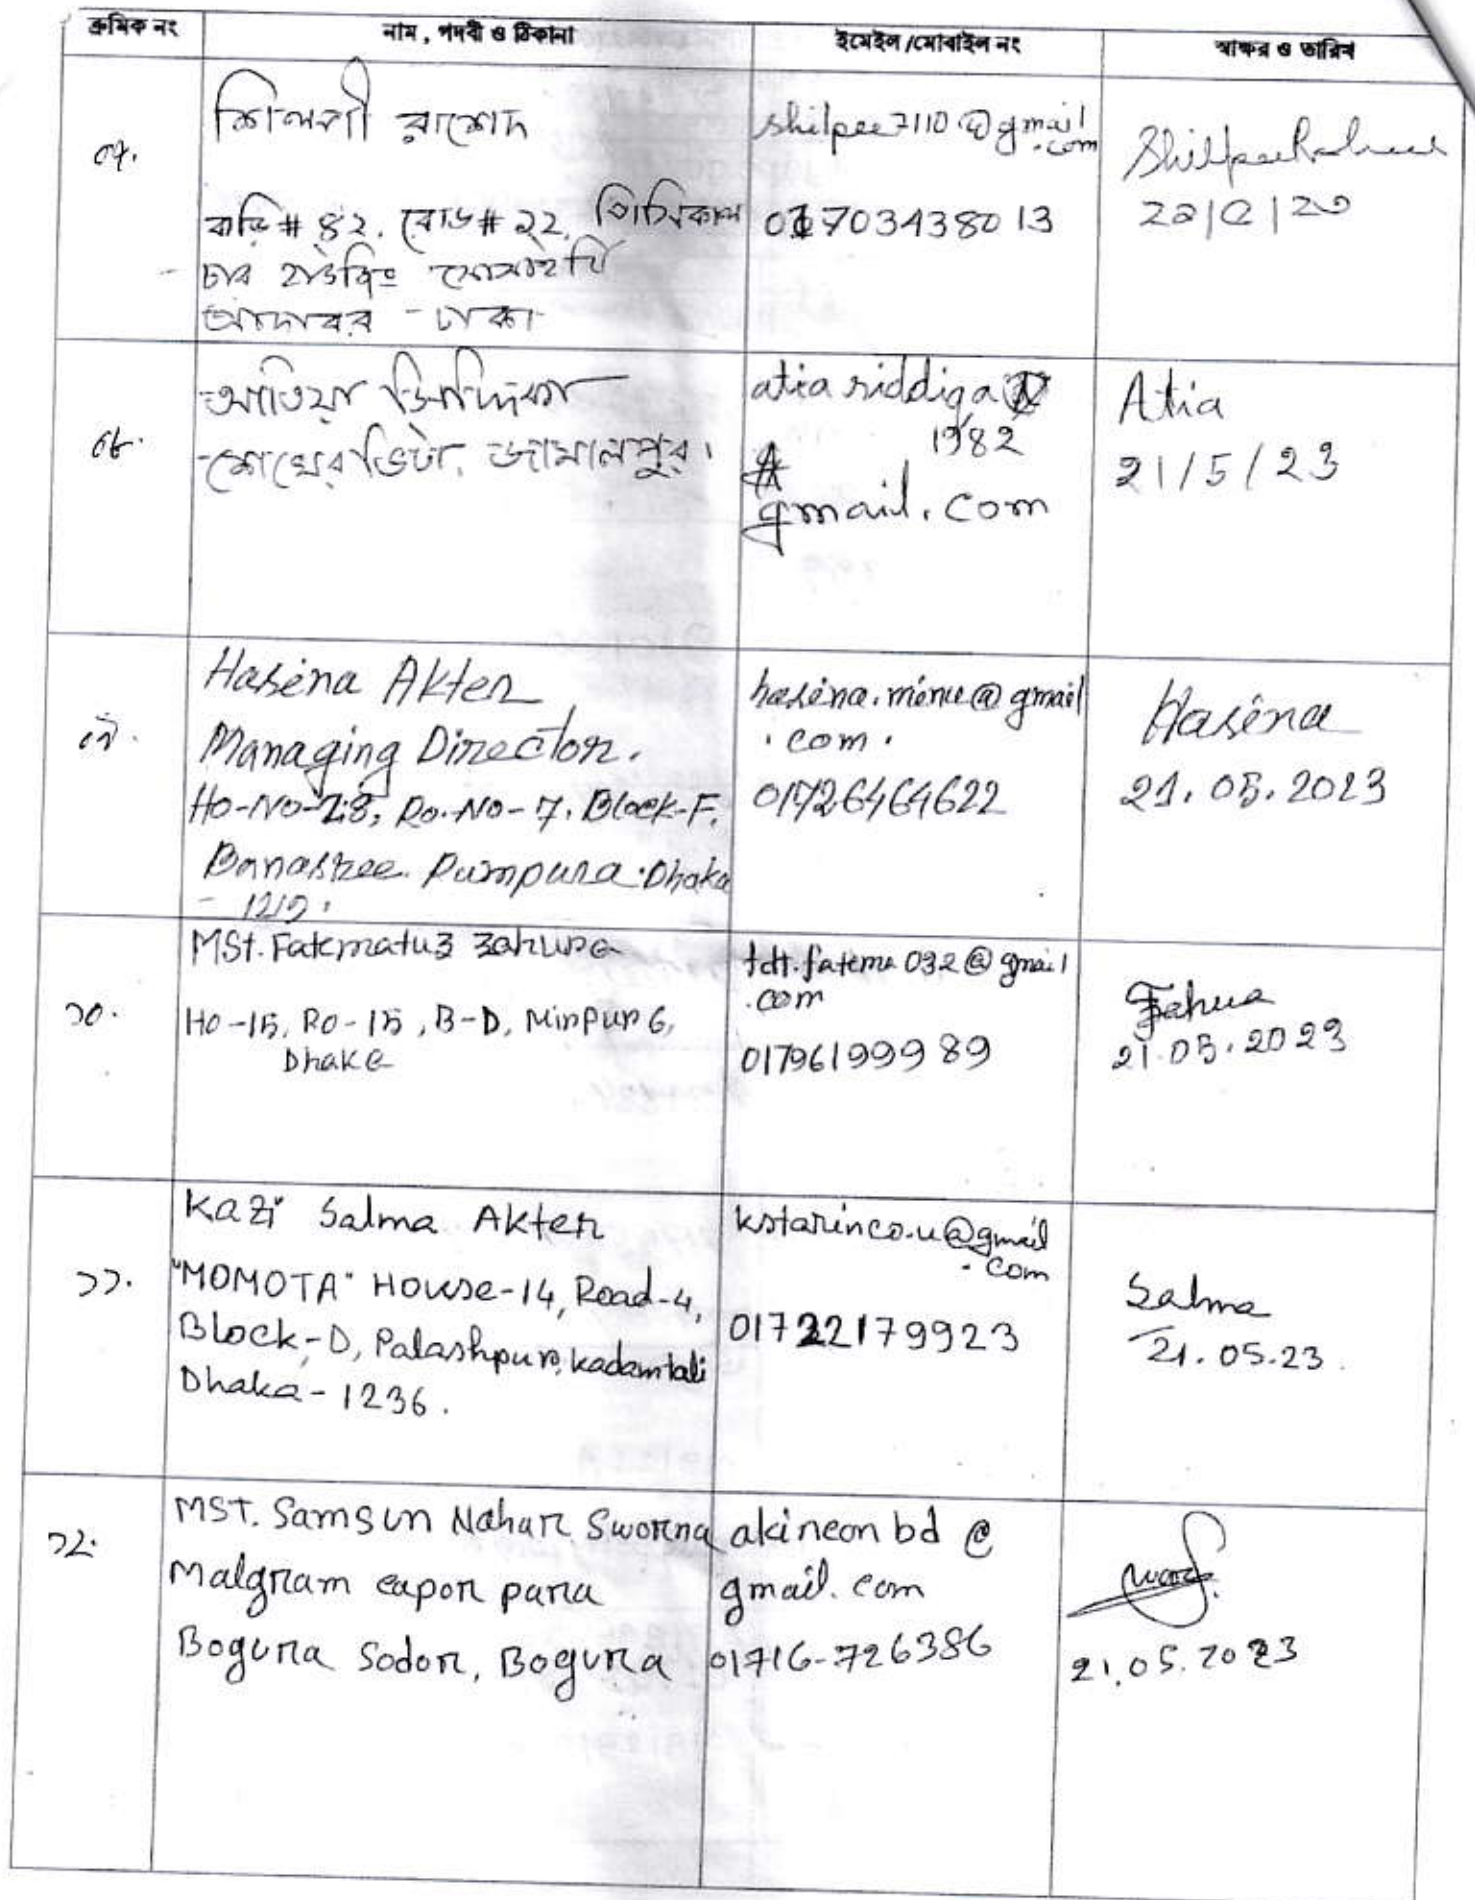 ক্রমিক নং নাম, পদবী ও ঠিকানা ইমেইল/মোবাইল নং স্বাক্ষর ও তারিখ
০৭.
শিলপী রাশেদ
বাড়ি # ৪২, রোড # ২২,
চার হাউজিং সোসাইটি
আদাবর - ঢাকা
shilpee7110@gmail
.com
01703438013
০৮.
আতিয়া সিদ্দিকা
শেখেরভিটা, জামালপুর।
atia siddiqa
1982
gmail.com
Atia
21/5/23
০৯.
Hasina Akter
Managing Director.
Ho-No-28, Ro.No-7, Block-F,
Banasree Rampura Dhaka
- 1219.
hasina.minu@gmail
.com.
01726464622
Hasina
21.05.2023
১০.
MSt. Fatematuz zohura
Ho-15, Ro-15, B-D, Mirpur 6,
Dhaka
fatema032@gmail
.com
01796199989
21.05.2023
১১.
Kazi Salma Akter
"MOMOTA" House-14, Road-4,
Block-D, Palashpur, kadamtali
Dhaka-1236.
kstarinco.u@gmail
.com
01722179923
Salma
21.05.23.
১২.
MST. Samsun Nahar Sworna
Malgram capor para
Bogura Sodor, Bogura
akineon bd @
gmail.com
01716-726386
21.05.2023